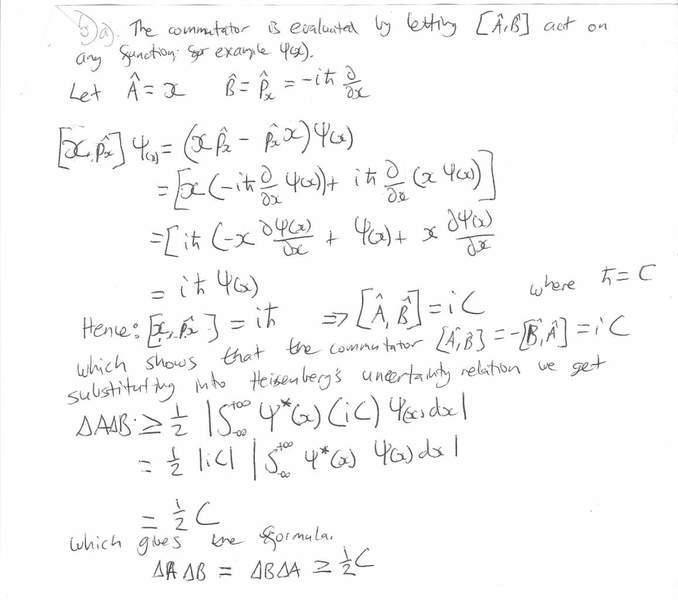 5)a). The commutator is evaluated by letting [Â,B̂] act on
any function. for example ψ(x).
Let Â = x B̂ = p̂ₓ = -iħ ∂/∂x
[x,p̂ₓ] ψ(x) = (x p̂ₓ - p̂ₓ x) ψ(x)
= [x(-iħ ∂/∂x ψ(x)) + iħ ∂/∂x (x ψ(x))]
= [iħ (-x ∂ψ(x)/∂x + ψ(x) + x ∂ψ(x)/∂x
= iħ ψ(x)
Hence: [x, p̂ₓ] = iħ ⇒ [Â, B̂] = iC where ħ = C
which shows that the commutator [Â,B̂] = -[B̂,Â] = iC
substituting into Heisenberg's uncertainty relation we get
ΔAΔB ≥ 1/2 |∫₋∞⁺∞ ψ*(x) (iC) ψ(x) dx|
= 1/2 |iC| |∫₋∞⁺∞ ψ*(x) ψ(x) dx|
= 1/2 C
which gives the formula.
ΔA ΔB = ΔBΔA ≥ 1/2 C